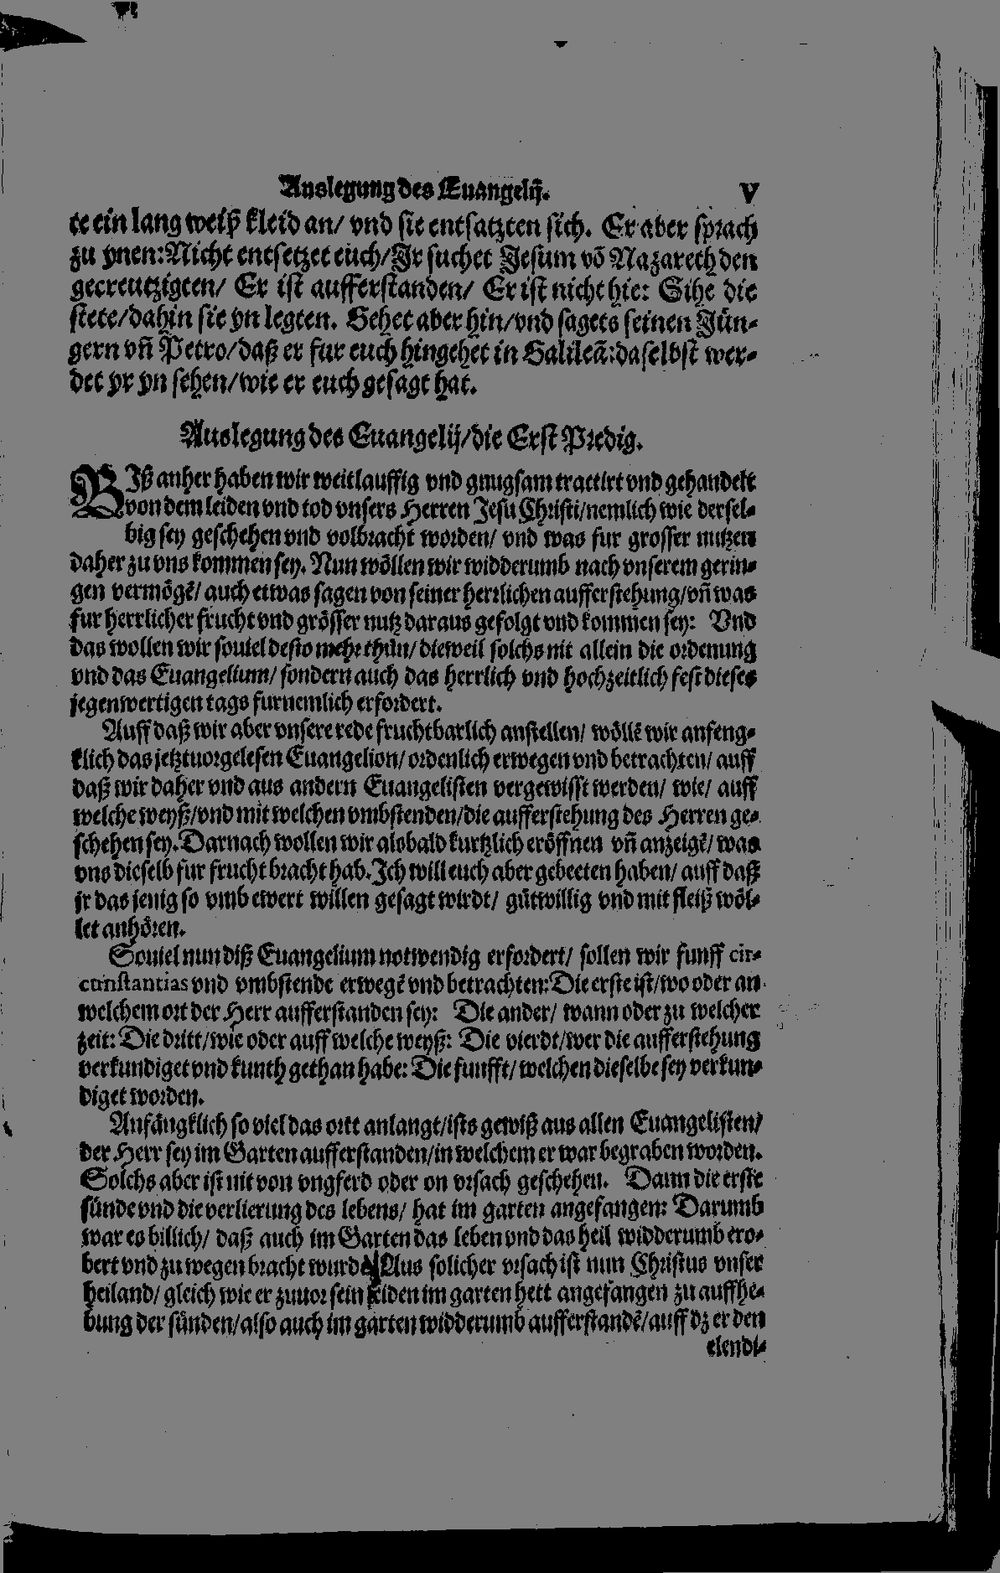 Auslegung des Euangelij. V
te ein lang weiß kleid an/ vnd sie entsatzten sich. Er aber sprach
zu ynen: Nicht entsetzet euch/ Ir suchet Jesum võ Nazareth den
gecreutzigten/ Er ist aufferstanden/ Er ist nicht hie: Sihe die
stete/ dahin sie yn legten. Gehet aber hin/ vnd sagets seinen Jün-
gern vñ Petro/ daß er fur euch hingehet in Galileã: daselbst wer-
det yr yn sehen/ wie er euch gesagt hat.
Auslegung des Euangelij/ die Erst Predig.
BIß anher haben wir weitlauffig vnd gnugsam tractirt vnd gehandelt
von dem leiden vnd tod vnsers Herren Jesu Christi/ nemlich wie dersel-
big sey geschehen vnd volbracht worden/ vnd was fur grosser nutzen
daher zu vns kommen sey. Nun wöllen wir widderumb nach vnserem gerin-
gen vermögẽ/ auch etwas sagen von seiner herrlichen aufferstehung/ vñ was
fur herrlicher frucht vnd grösser nutz daraus gefolgt vnd kommen sey: Vnd
das wollen wir souiel desto mehr thůn/ dieweil solchs nit allein die ordenung
vnd das Euangelium/ sondern auch das herrlich vnd hochzeitlich fest dieses
jegenwertigen tags furnemlich erfordert.
Auff daß wir aber vnsere rede fruchtbarlich anstellen/ wöllẽ wir anfeng-
klich das jetztuorgelesen Euangelion/ ordenlich erwegen vnd betrachten/ auff
daß wir daher vnd aus andern Euangelisten vergewisst werden/ wie/ auff
welche weyß/ vnd mit welchen vmbstenden/ die aufferstehung des Herren ge-
schehen sey. Darnach wollen wir alsbald kurtzlich eröffnen vñ anzeigẽ/ was
vns dieselb fur frucht bracht hab. Ich will euch aber gebeeten haben/ auff daß
jr das jenig so vmb ewert willen gesagt wirdt/ gůtwillig vnd mit fleiß wöl-
let anhören.
Souiel nun diß Euangelium notwendig erfordert/ sollen wir funff cir-
cunstantias vnd vmbstende erwegẽ vnd betrachten: Die erste ist/ wo oder an
welchem ort der Herr aufferstanden sey: Die ander/ wann oder zu welcher
zeit: Die dritt/ wie oder auff welche weyß: Die vierdt/ wer die aufferstehung
verkundiget vnd kunth gethan habe: Die funfft/ welchen dieselbe sey verkun-
diget worden.
Anfängklich so viel das ortt anlangt/ ists gewiß aus allen Euangelisten/
der Herr sey im Garten aufferstanden/ in welchem er war begraben worden.
Solchs aber ist nit von vngferd oder on vrsach geschehen. Dann die erste
sünde vnd die verlierung des lebens/ hat im garten angefangen: Darumb
war es billich/ daß auch im Garten das leben vnd das heil widderumb ero-
bert vnd zu wegen bracht wurde. Aus solicher vrsach ist nun Christus vnser
heiland/ gleich wie er zuuor sein leiden im garten hett angefangen zu auffhe-
bung der sünden/ also auch im garten widderumb aufferstandẽ/ auff dz er den
elendi-